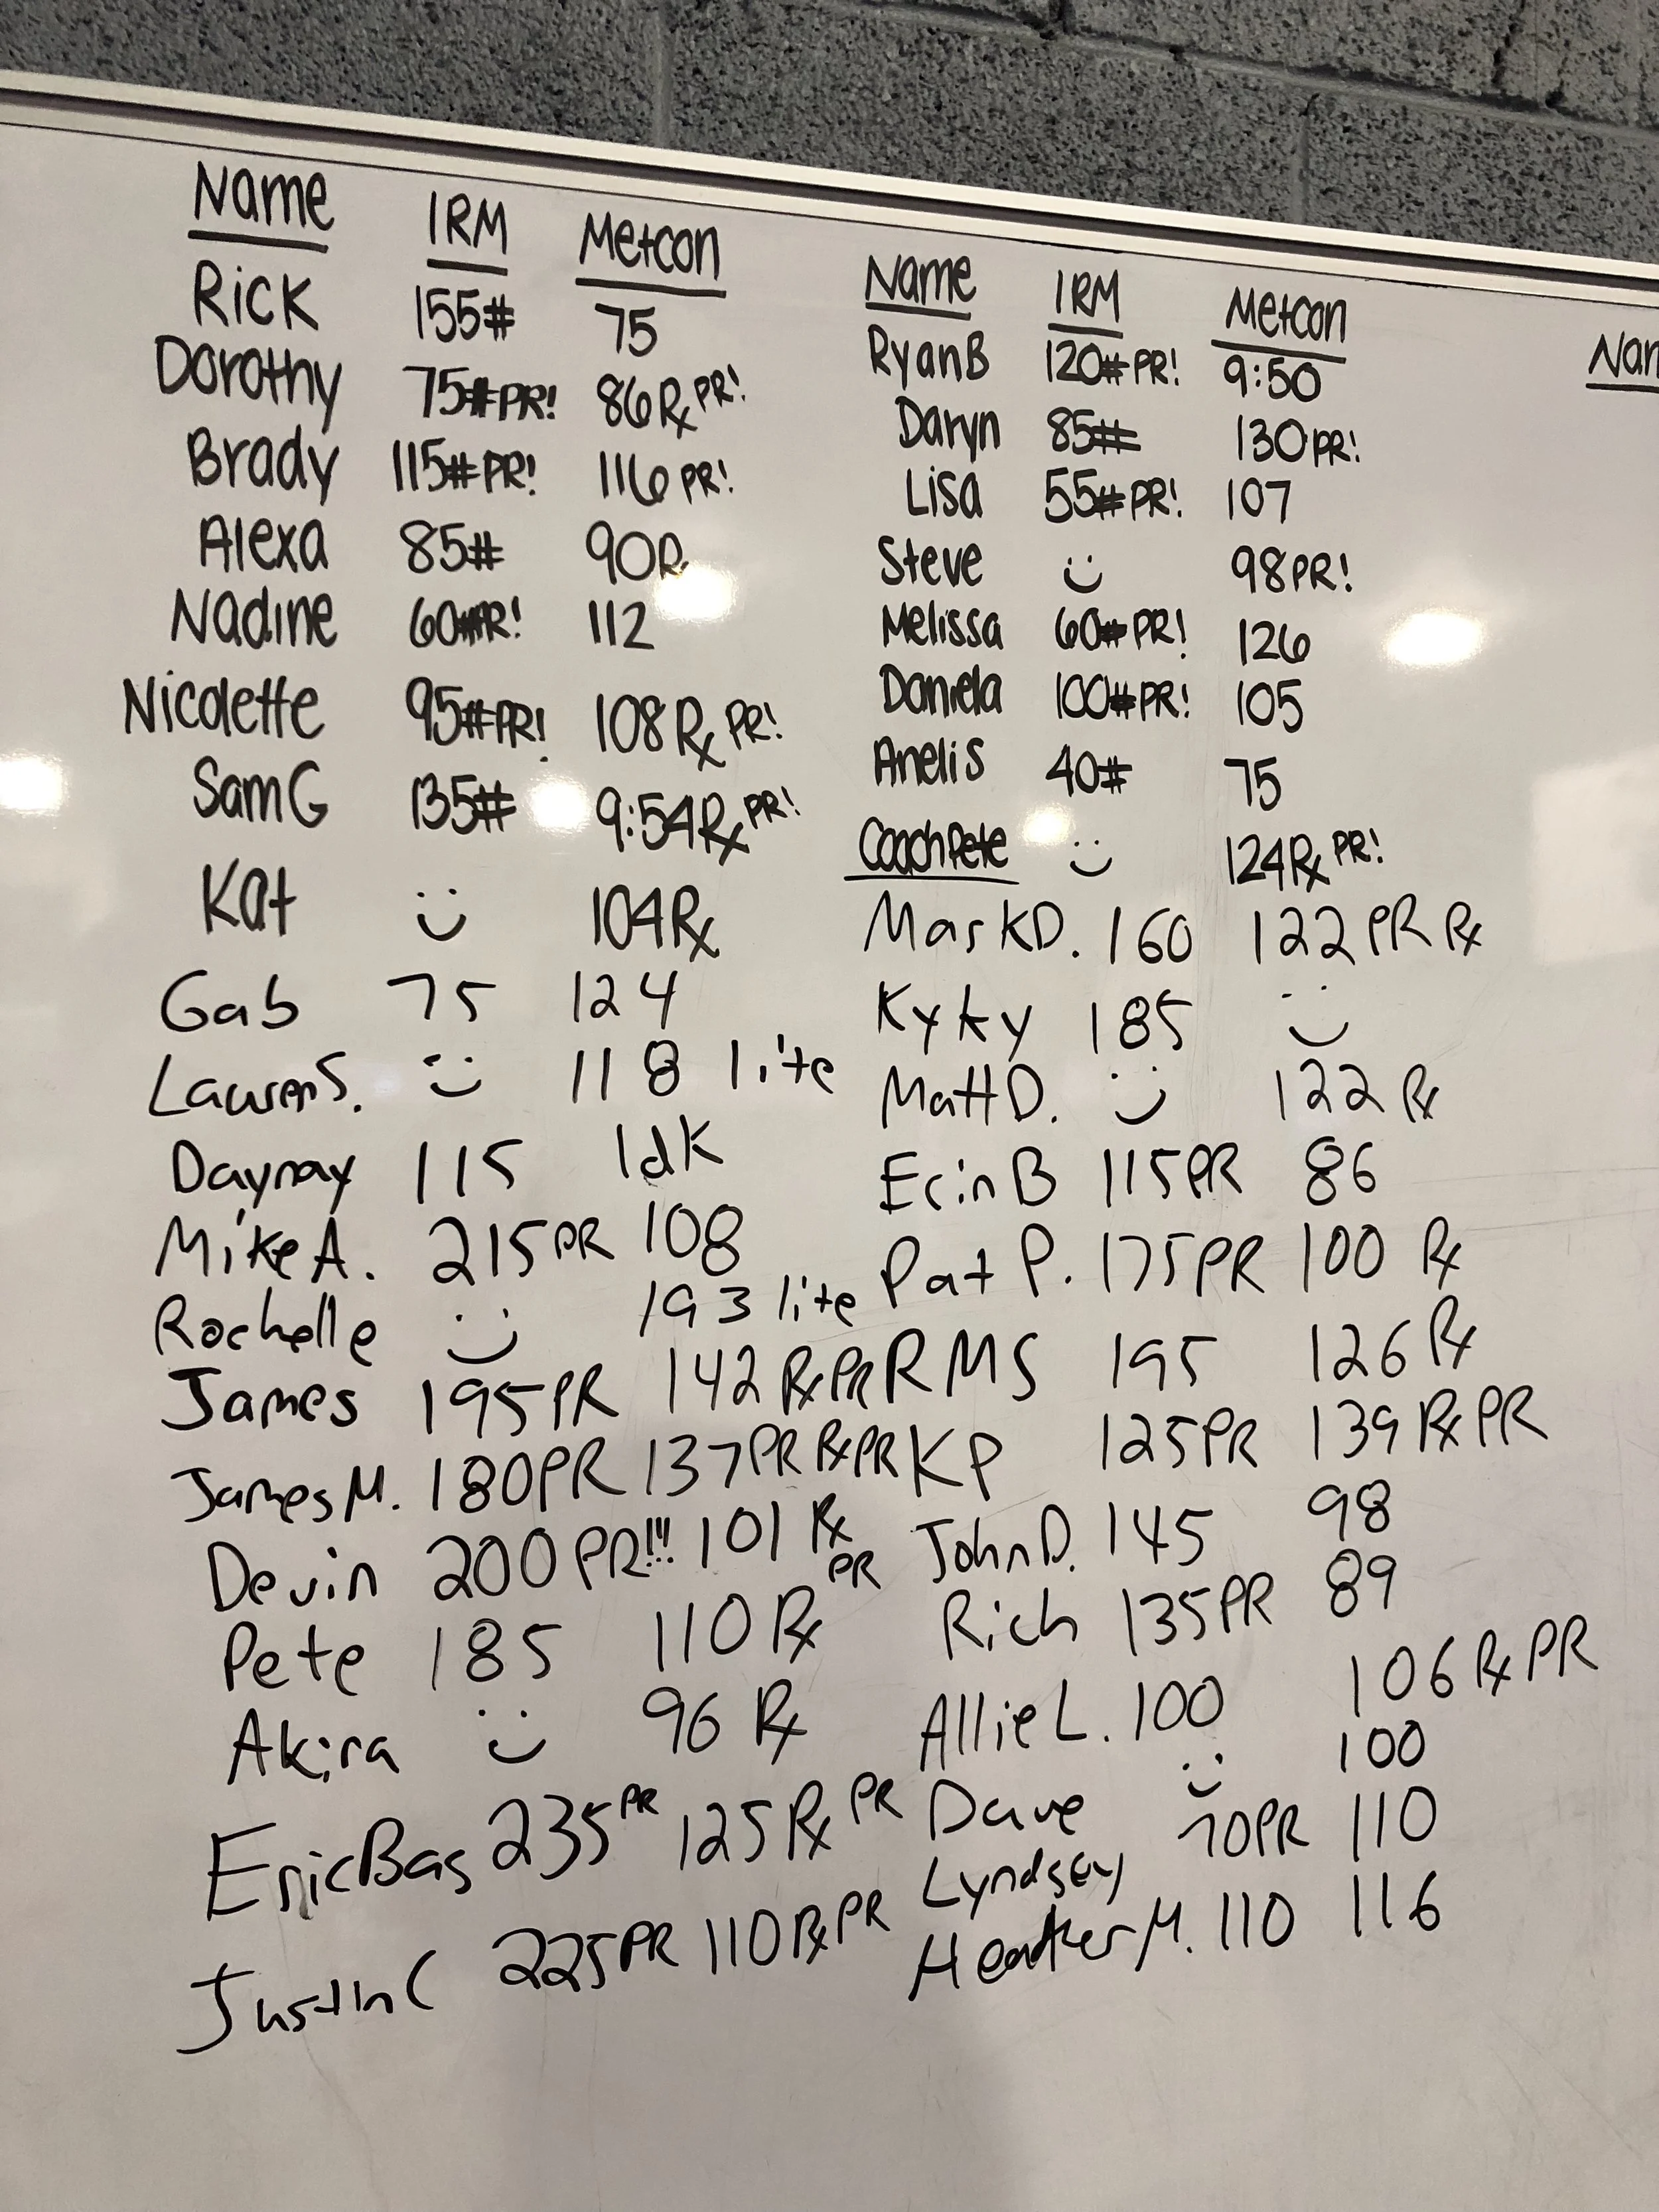 Name 1RM Metcon
Rick 155# 75
Dorothy 75#PR! 86Rx PR!
Brady 115#PR! 116 PR!
Alexa 85# 90Rx
Nadine 60#PR! 112
Nicolette 95#PR! 108 Rx PR!
Sam G 135# 9:54Rx PR!
Kat 104Rx
Gab 75 124
Lauren S. 118 lite
Daynay 115 Idk
Mike A. 215 PR 108
Rochelle 193 lite
James 195PR 142 Rx PR
James M. 180PR 137PR Rx PR
Devin 200 PR!!! 101 Rx PR
Pete 185 110 Rx
Akira 96 Rx
Eric Bas 235 PR 125 Rx PR
Justin C 225PR 110 Rx PR
Name 1RM Metcon
Ryan B 120#PR! 9:50
Daryn 85# 130 PR!
Lisa 55#PR! 107
Steve 98PR!
Melissa 60#PR! 126
Daniela 100#PR! 105
Anelis 40# 75
Coach Pete 124Rx PR!
Mark D. 160 122 PR Rx
Kyky 185
Matt D. 122 Rx
Erin B 115PR 86
Pat P. 175PR 100 Rx
RMS 195 126 Rx
KP 125PR 139 Rx PR
John D. 145 98
Rich 135PR 89
Allie L. 100 106 Rx PR
Dave 100
Lyndsey 70PR 110
Heather M. 110 116
Nam